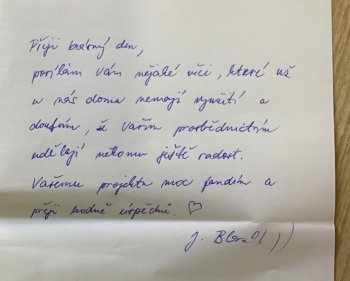 Přeji krásný den,
posílám Vám nějaké věci, které už
u nás doma nemají využití a
doufám, že Vaším prostřednictvím
udělají někomu ještě radost.
Vašemu projektu moc fandím a
přeji hodně úspěchů. ♡
J.